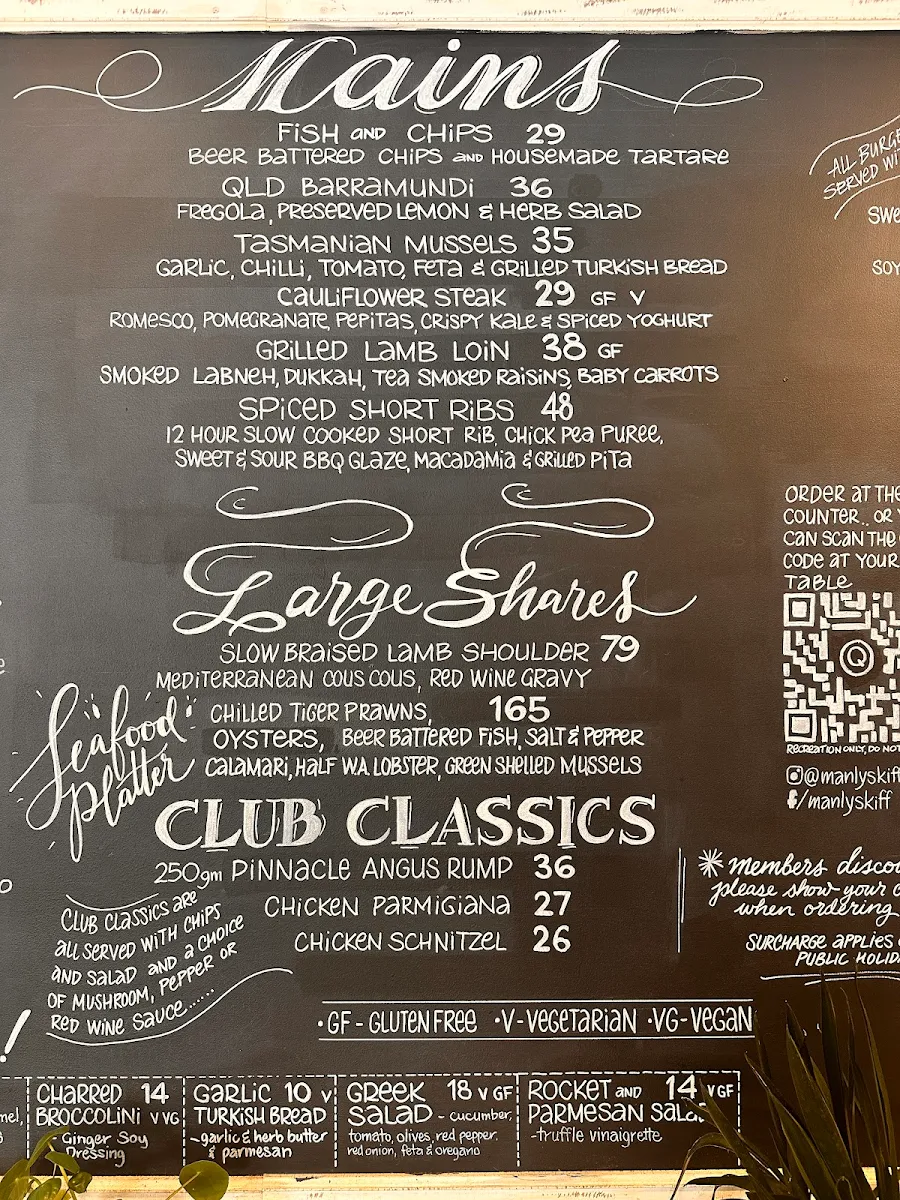 Mains
FISH AND CHIPS 29
BEER BATTERED CHIPS AND HOUSEMADE TARTARE
QLD BARRAMUNDI 36
FREGOLA, PRESERVED LEMON & HERB SALAD
TASMANIAN MUSSELS 35
GARLIC, CHILLI, TOMATO, FETA & GRILLED TURKISH BREAD
CAULIFLOWER STEAK 29 GF V
ROMESCO, POMEGRANATE, PEPITAS, CRISPY KALE & SPICED YOGHURT
GRILLED LAMB LOIN 38 GF
SMOKED LABNEH, DUKKAH, TEA SMOKED RAISINS, BABY CARROTS
SPICED SHORT RIBS 48
12 HOUR SLOW COOKED SHORT RIB, CHICK PEA PUREE,
SWEET & SOUR BBQ GLAZE, MACADAMIA & GRILLED PITA
Large Shares
SLOW BRAISED LAMB SHOULDER 79
MEDITERRANEAN COUS COUS, RED WINE GRAVY
Seafood
Platter
CHILLED TIGER PRAWNS, 165
OYSTERS, BEER BATTERED FISH, SALT & PEPPER
CALAMARI, HALF WA LOBSTER, GREEN SHELLED MUSSELS
CLUB CLASSICS
250gm PINNACLE ANGUS RUMP 36
CHICKEN PARMIGIANA 27
CHICKEN SCHNITZEL 26
CLUB CLASSICS ARE
ALL SERVED WITH CHIPS
AND SALAD AND A CHOICE
OF MUSHROOM, PEPPER OR
RED WINE SAUCE......
•GF - GLUTEN FREE •V-VEGETARIAN •VG-VEGAN
CHARRED 14
BROCCOLINI V VG
Ginger Soy
Dressing
GARLIC 10 V
TURKISH BREAD
-garlic & herb butter
& parmesan
GREEK 18 V GF
SALAD - cucumber,
tomato, olives, red pepper.
red onion, feta & oregano
ROCKET AND 14 V GF
PARMESAN SALAD
-truffle vinaigrette
ALL BURGE
SERVED WI
SWE
SOY
ORDER AT THE
COUNTER.. OR Y
CAN SCAN THE
CODE AT YOUR
TABLE
Q
RECREATION ONLY, DO NOT
@manlyskiff
f/manlyskiff
*members disco
please show your c
when ordering
SURCHARGE APPLIES
PUBLIC HOLID